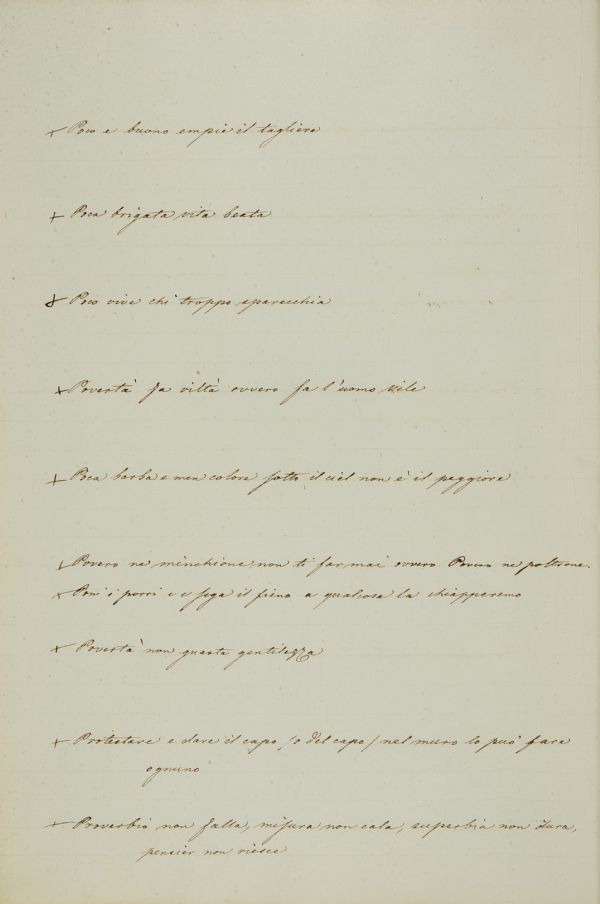 + Poco e buono empie il tagliere
+ Poca brigata vita beata
+ Poco vive chi troppo sparecchia
+ Povertà fa viltà ovvero fa l'uomo vile
+ Poca barba e men colore sotto il ciel non è il peggiore
+ Povero ne minchione non ti far mai ovvero Povero ne poltrone.
+ Poni i porri e sega il fieno a qualcosa la chiapperemo
+ Povertà non guasta gentilezza
+ Protestare e dare il capo /o del capo/ nel muro lo può fare
ognuno
+ Proverbio non falla, misura non cala, superbia non dura,
pensier non riesce